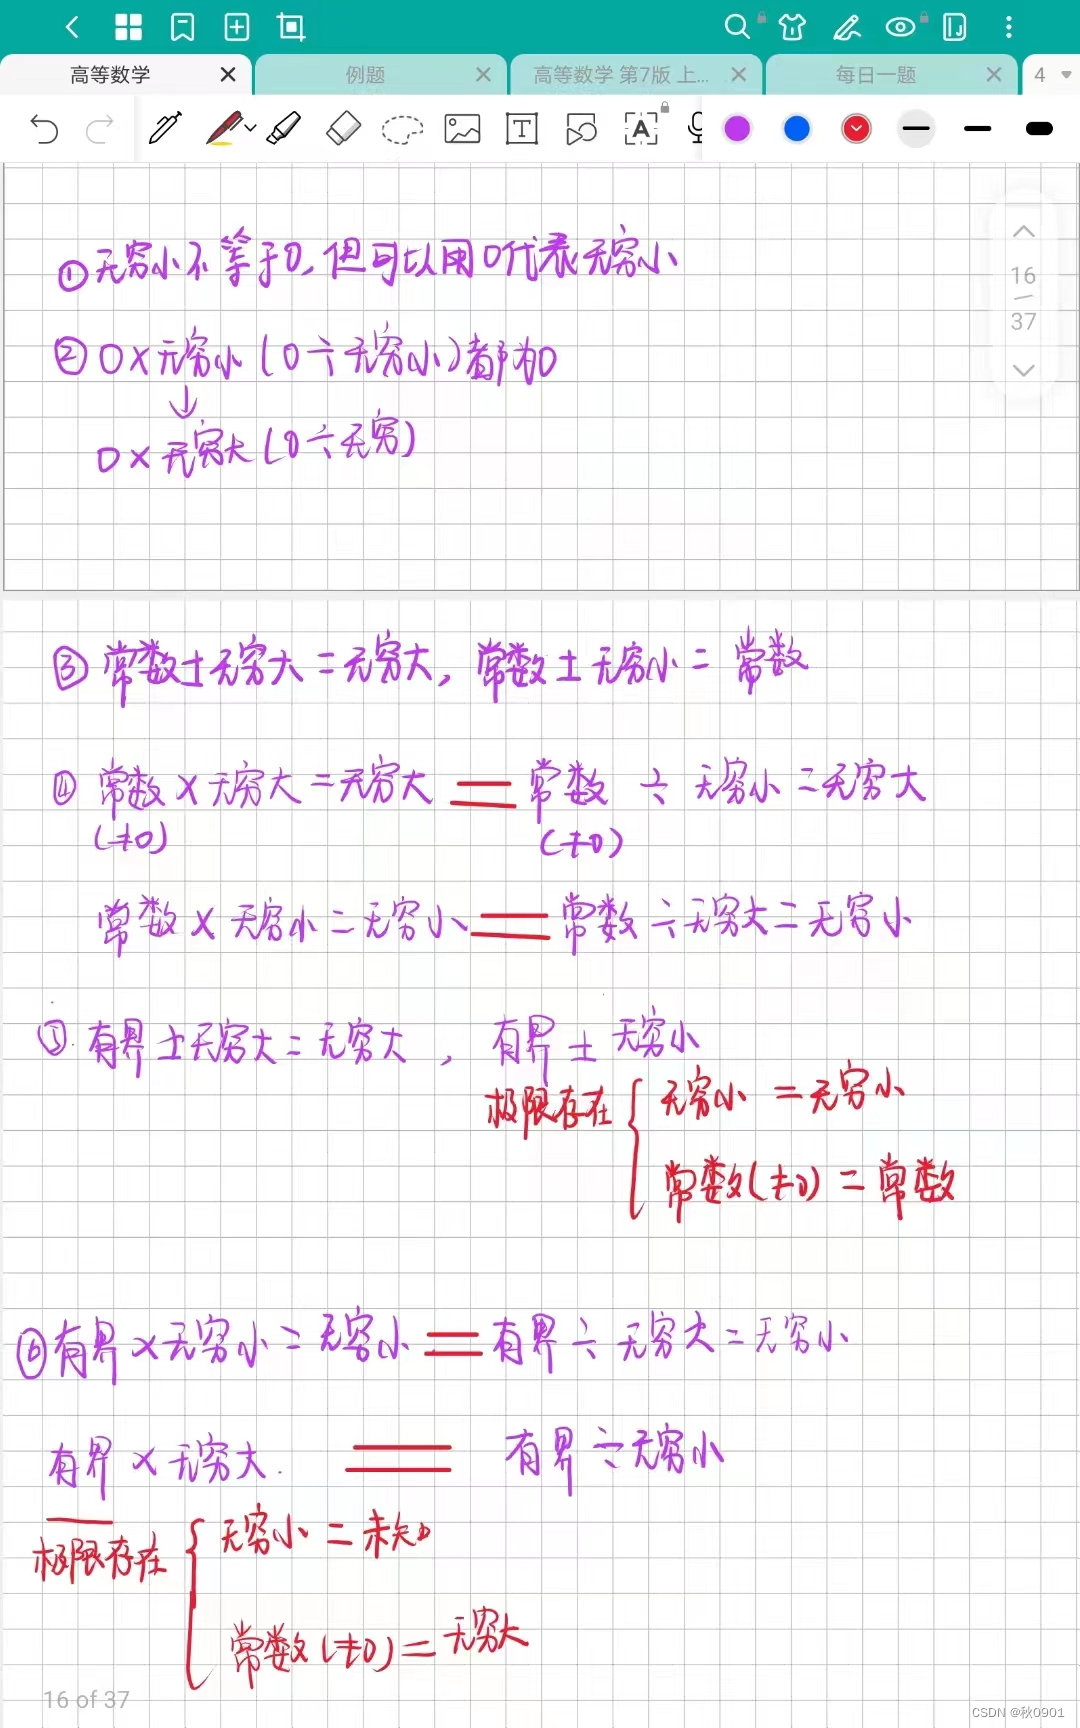 高等数学 例题 高等数学 第7版 上... 每日一题 4
T A
16
37
①无穷小不等于0,但可以用0代表无穷小
②0×无穷小(0÷无穷小)都为0
↓
0×无穷大(0÷无穷)
③常数±无穷大=无穷大,常数±无穷小=常数
④常数×无穷大=无穷大=常数÷无穷小=无穷大
(≠0) (≠0)
常数×无穷小=无穷小=常数÷无穷大=无穷小
⑤有界±无穷大=无穷大,有界±无穷小
极限存在{无穷小=无穷小
常数(≠0)=常数
⑥有界×无穷小=无穷小=有界÷无穷大=无穷小
有界×无穷大.=有界÷无穷小
极限存在{无穷小=未知
常数(≠0)=无穷大
16 of 37
CSDN @秋0901